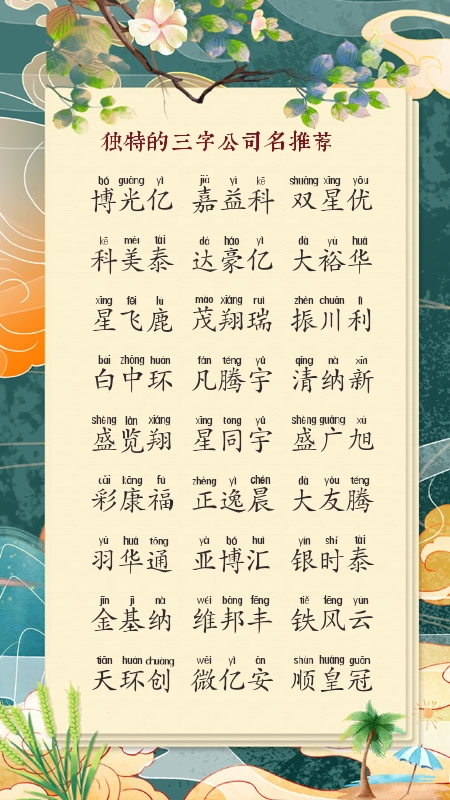 独特的三字公司名推荐
bó guāng yì jiā yì kē shuāng xīng yōu
博光亿 嘉益科 双星优
kē měi tài dá háo yì dà yù huá
科美泰 达豪亿 大裕华
xīng fēi lù mào xiáng ruì zhèn chuān lì
星飞鹿 茂翔瑞 振川利
bái zhōng huán fán téng yǔ qīng nà xīn
白中环 凡腾宇 清纳新
shèng lǎn xiáng xīng tóng yǔ shèng guǎng xù
盛览翔 星同宇 盛广旭
cǎi kāng fú zhèng yì chén dà yǒu téng
彩康福 正逸晨 大友腾
yǔ huá tōng yà bó huì yín shí tài
羽华通 亚博汇 银时泰
jīn jī nà wéi bāng fēng tiě fēng yún
金基纳 维邦丰 铁风云
tiān huán chuàng wēi yì ān shùn huáng guān
天环创 微亿安 顺皇冠